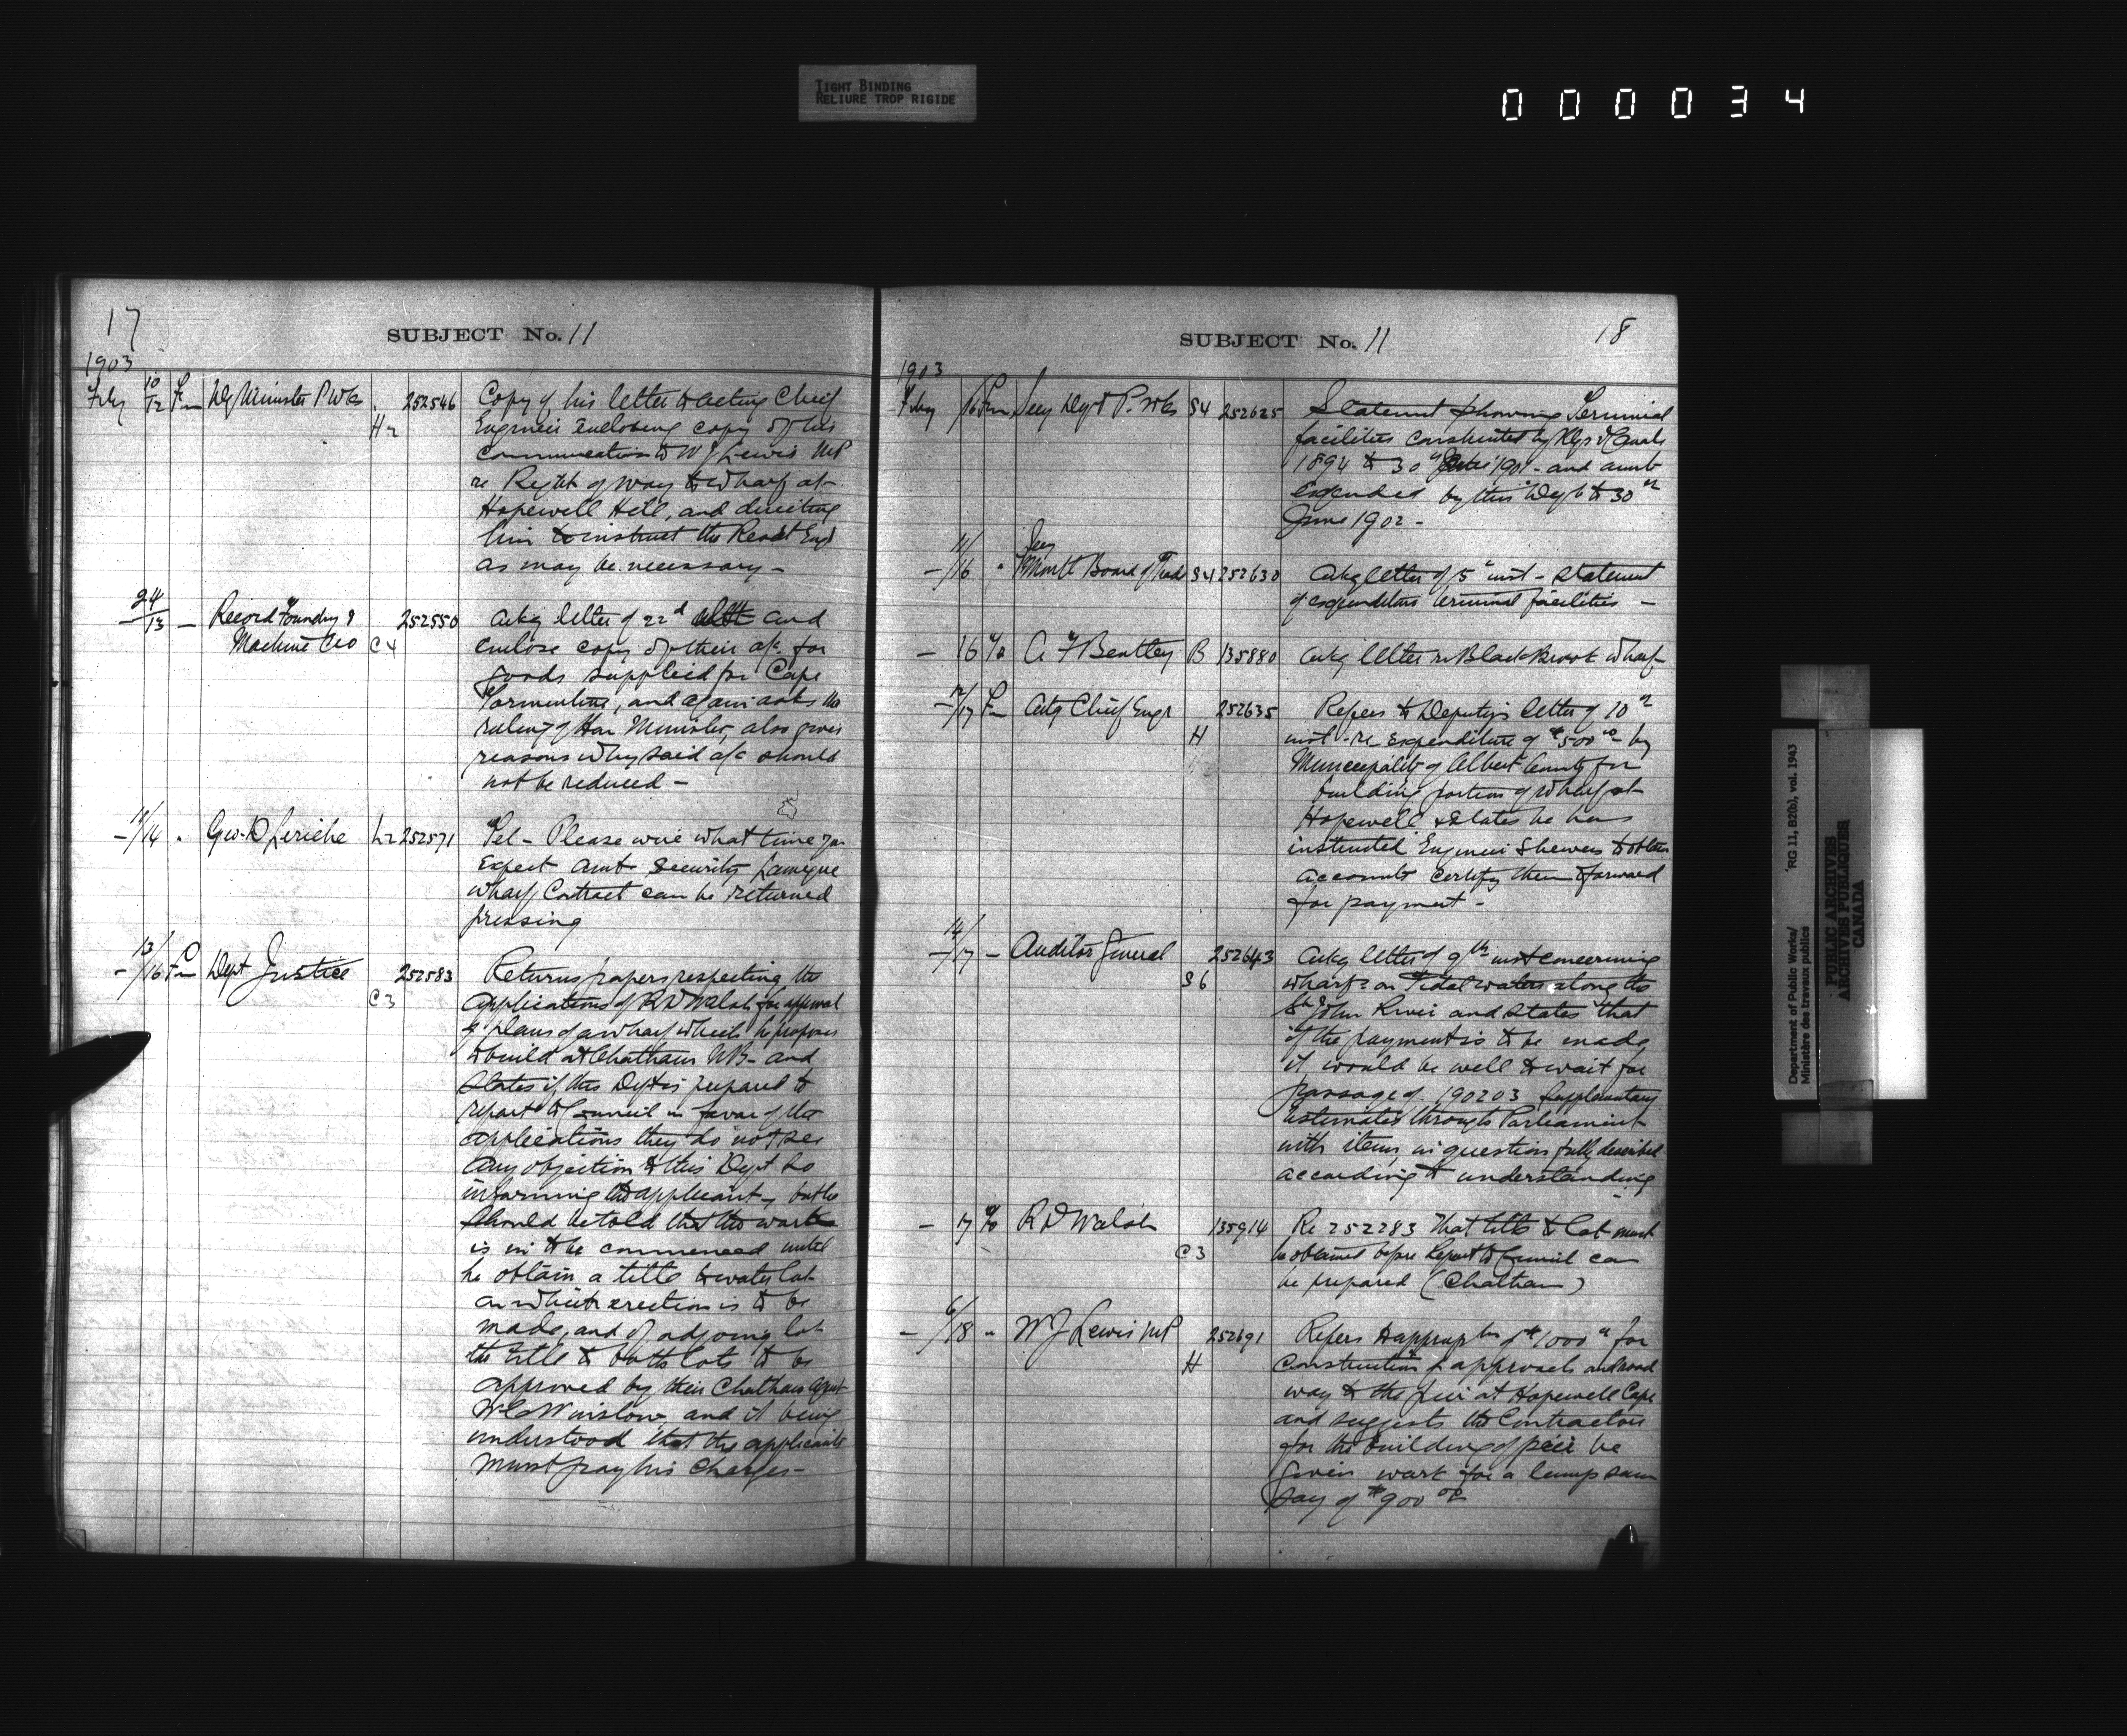 TIGHT BINDING
RELIURE TROP RIGIDE
000034
17
SUBJECT No. 11
1903
Feby 10/12 Fm Dy Minister P Wks H2 252546 Copy of his letter to Acting Chief
Engineer enclosing copy of his
communication to W J Lewis MP
re Right of way to wharf at
Hopewell Hill, and directing
him to instruct the Resdt Engr
as may be necessary -
24/13 - Record Foundry &
Machine Co C4 252550 Ackg letter of 22d ult and
enclose copy of their a/c for
goods supplied for Cape
Tormentine, and again asks the
ruling of Hon Minister, also gives
reasons why said a/c should
not be reduced -
- 14 " Geo. D Leriche L2 252571 Tel - Please wire what time you
expect amt security Lameque
wharf Contract can be returned
pressing
- 13/16 Fm Dept Justice C3 252583 Returns papers respecting the
applications of R D Walsh for approval
of plans of a wharf which he proposes
to build at Chatham NB - and
States if this Dept is prepared to
report to Council in favor of the
applications they do not see
any objection to this Dept so
informing the applicant, but he
should be told that the works
is to be commenced until
he obtain a title to water lot
on which erection is to be
made, and of adjoing lot
the title to both lots to be
approved by their Chatham Agent
Winslow, and it being
understood that the applicants
must pay his charges -
18
SUBJECT No. 11
1903
Feby 16 Fm Secy Dept P. Wks S4 252625 Statement showing Terminial
facilities constructed by Rlys & Canals
1894 to 30 June 1901 - and amt
expended by this Dept to 30th
June 1902 -
- 11/16 " Secy
Montl Board of Trade S4 252630 Ackg letter of 5" inst - Statement
of expenditure terminal facilities -
- 16 To A F Bentley B 135880 Ackg letter re Black Brook wharf
- 12/17 Fm Actg Chief Engr H 252635 Refers to Deputy's letter of 10th
inst. re expenditure of $500.00 by
Municipality of Albert County for
building portion of wharf at
Hopewell & States he has
instructed Engineer Shewen to obtain
accounts certify them & forward
for payment -
- 14/17 - Auditor General S6 252643 Ackg letter of 9th inst concerning
wharfs on Tidal waters along the
St John River and states that
if the payment is to be made,
it would be well to wait for
passage of 190203 Supplementary
Estimates through Parliament
with items in question fully described
according to understanding
- 17 To R D Walsh C3 135914 Re 252283 That title to lot must
be obtained before Report to Council can
be prepared (Chatham)
- 6/18 " W J Lewis MP H 252691 Refers to appropn of $1000 for
Construction of approach and road
way to the pier at Hopewell Cape
and suggests the Contractors
for the building of pier be
given work for a lump sum
say of $900.00
Department of Public Works/
Ministère des travaux publics
RG 11, B2(b), vol. 1943
PUBLIC ARCHIVES
ARCHIVES PUBLIQUES
CANADA